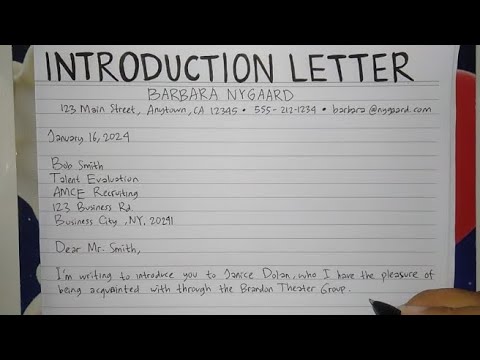 INTRODUCTION LETTER
BARBARA NYGAARD
123 Main Street, Anytown, CA 12345 • 555-212-1234 • barbara@nygaard.com
January 16, 2024
Bob Smith
Talent Evaluation
AMCE Recruiting
123 Business Rd.
Business City ,NY, 20241
Dear Mr. Smith,
I'm writing to introduce you to Janice Dolan, who I have the pleasure of
being acquainted with through the Brandon Theater Group.